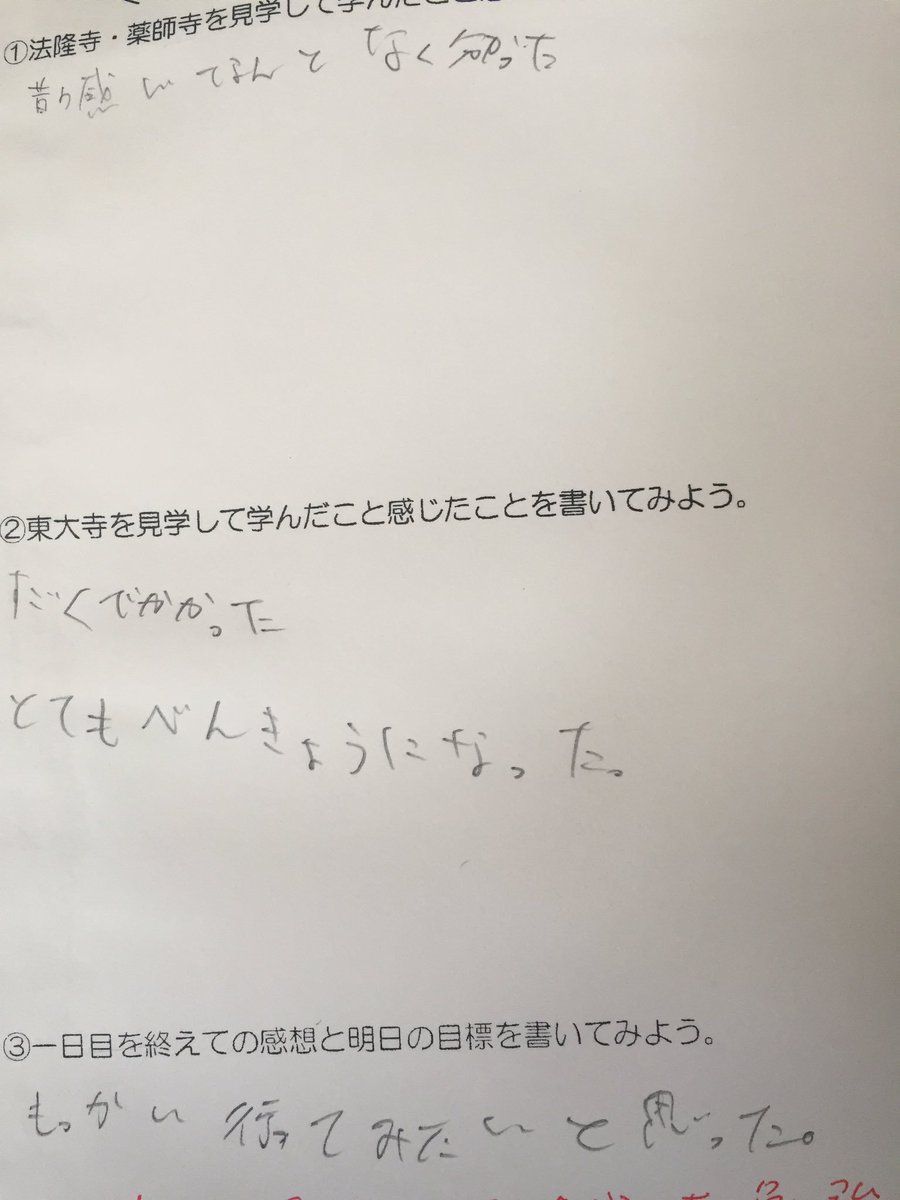 ①法隆寺・薬師寺を見学して学んだこと
なんとなく
②東大寺を見学して学んだこと感じたことを書いてみよう。
だくでかかった
とてもべんきょうになった。
③一日目を終えての感想と明日の目標を書いてみよう。
もっかい行ってみたいと思った。